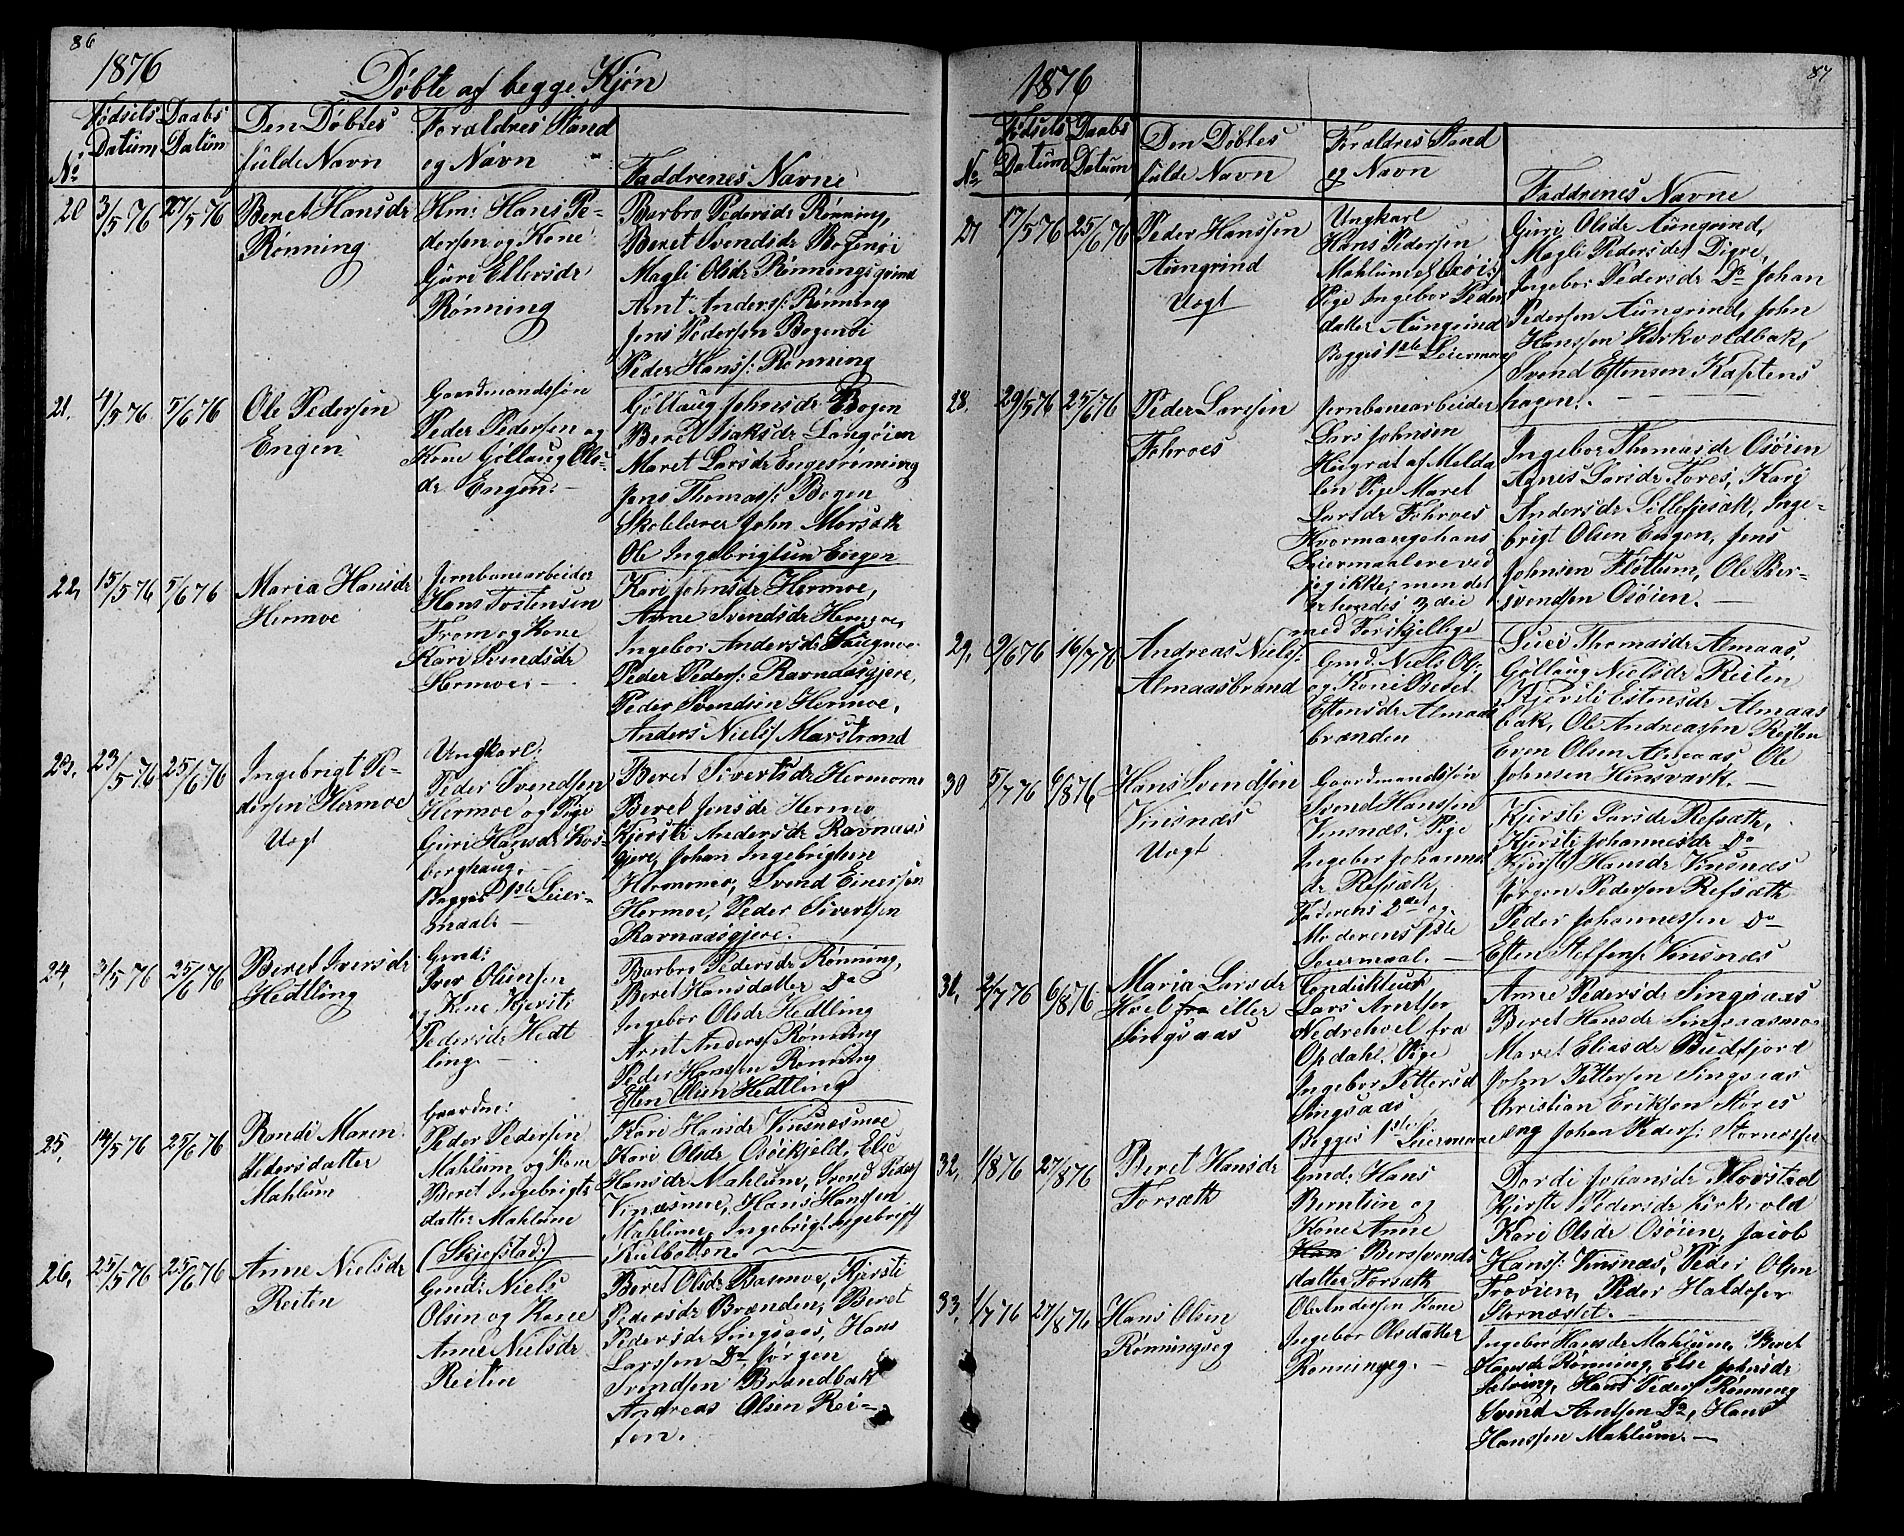 86
1876
Döbte af begge Kjön
Fødsels Daabs
Datum, Datum
Den Döbtes
fulde Navn
Foraldres Stand
og Navn
Faddrenes Navne
No
20 3/5 76 27/5 76
Beret Hansdr
Rønning
Hmi: Hans Pe-
dersen og Kone
Guri Ellersdr
Rønning
Barbro Pedersdr Rønning,
Beret Svendsdr Bogenöi
Magli Olsdr Rønningsgrind
Arnt Anders: Rønning
Jens Pedersen Bogenöi
Peder Hans: Rønning
21. 4/5 76 5/6 76
Ole Pedersen
Engen
Gaardmandssøn
Peder Pedersen og
Kone Göllaug Ols-
dr Engen. —
Göllaug Johnsdr Bogen
Beret Isaksdr Langöien
Maret Larsdr Engesrönning
Jens Thomas: Bogen
Skolelærer John Morsæth
Ole Ingebrigtsen Engen
22, 15/5 76 5/6 76
Maria Hansdr
Hermoe
Jernbanearbeider
Hans Tostensen
From og Kone
Kari Svendsdr
Hermoe. —
Kari Johnsdr Hermoe,
Anne Svendsdr Hermoe,
Ingebor Andersdr Haugmoe
Peder Peders: Ravnaasgjere,
Peder Svendsen Hermoe,
Anders Niels: Marstrand
23. 23/5 76 25/6 76
Ingebrigt Pe-
dersen Hermoe
Uægt
Ungkarl:
Peder Svendsen
Hermoe og Pige
Guri Hansdr Kos-
berghaug.
Begges 1ste Leier-
maal. —
Beret Sivertsdr Hermoemo
Beret Jensdr Hermoe
Kjersti Andersdr Ravnaas
gjere, Johan Ingebrigtsen
Hermoemo, Svend Einersen
Hermoe, Peder Sivertsen
Ravnaasgjere.
24, 31/5 76 25/6 76
Beret Iversdr
Hedtling
Gmd:
Iver Olsensen
og Kone Kjersti
Pedersdr Hedt
ling. —
Barbro Pedersdr Rønning,
Beret Hansdatter Do
Ingebor Olsdr Hedtling
Arnt Anders: Rønning
Peder Hansen Rønning
Esten Olsen Hedtling
25, 14/5 76 25/6 76
Randi Maren
Pedersdatter
Mahlum
Gaardm:
Peder Pedersen
Mahlum og Kone
Beret Ingebrigts
datter Mahlum
(Skjefstad:)
Kari Hansdr Vinsnesmoe
Kari Olsdr Osöikjeld, Else
Hansdr Mahlum, Svend Peders:
Vinsnæsmoe, Hans Hansen
Mahlum, Ingebrigt Ingebrigts:
Kulbotten. —
26, 25/5 76 25/6 76
Anne Nielsdr
Reiten
Gmd: Niels
Olsen og Kone
Anne Nielsdr
Reiten
Beret Olsdr Busmoe, Kjersti
Pedersdr Brænden, Beret
Pedersdr Singsaas, Hans
Larssen Do, Jörgen
Svendsen Brændbak
Andreas Olsen Rei-
ten.
87
1876
Födsels Daabs
No Datum Datum
Den Döbtes
fulde Navn
Foraldres Stand
og Navn
Faddrenes Navne
27 17/5 76 25/6 76
Peder Hanssen
Aungrind
Uægt
Ungkarl
Hans Pedersen
Mahlum
Pige Ingebor Peders
datter Aungrind
Begges 1ste Leiermaal
Guri Olsdr Aungrind,
Magli Pedersdr Digre,
Ingebor Pedersdr Do Johan
Pedersen Aungrind, John
Hanssen Kirkvoldbak,
Svend Estensen Kaptens
hagen. —
28. 29/5 76 25/6 76
Peder Larssen
Fohroes
Jernbanearbeider
Lars Johnsen
Högrat af Melda
len Pige Maret
Larsdr Fohroes
Hvormange hans
Leiermaal ere ved
jeg ikke, men det
er hendes 3die
med Forskjellige
Ingebor Thomasdr Osöien
Agnes Larsdr Fores, Kari
Andersdr Sillefjesak, Inge-
brigt Olsen Engen, Jens
Johnsen Flöttum, Ole Ber-
svendsen Osöien. —
29, 9/6 76 16/7 76
Andreas Niels:
Almaasbrænd
Gmd. Niels Ols:
og Kone Beret
Estensdr Almaas
brænden
Suci Thomasdr Almaas,
Göllaug Nielsdr Reiten
Kjersti Estensdr Almaas
bak, Ole Andreassen Reiten
Even Olsen Almaas, Ole
Johnsen Hinsværk. —
30 5/7 76 6/8 76
Hans Svendsen
Vinsnæs
Uægt
Gaardmandssøn
Svend Hanssen
Vinsnæs. Pige
Ingebor Johannes
dr Refsæth,
Faderens 2det og
Moderens 1ste
Leiermaal. —
Kjersti Larsdr Refsæth,
Kjersti Johannesdr Do
Kjersti Hansdr Vinsnæs
Jörgen Pedersen Refsæth
Peder Johannessen Do
Esten Steffens: Vinsnæs
31, 2/7 76 6/8 76
Maria Larsdr
Hoel fra eller
Singsaas
Condikteur
Lars Arntsen
Nedrehoel fra
Opdahl. Pige
Ingebor Pettersd
Singsaas
Begges 1ste Leiermaal
Anne Pedersdr Singsaas
Beret Hansdr Singsaasmo
Maret Eliasdr Budfjord
John Pettersen Singsaas
Christian Eriksen Störes
eng Johan Peders: Stornæsset
32, 1/8 76 27/8 76
Beret Hansdr
Forsæth
Gmd: Hans
Berntsen og
Kone Anne
Han Berssvends
datter Forsæth
Dordi Johansdr Horstad
Kjersti Pedersdr Kirkvold
Kari Olsdr Osöien, Jacob
Hans: Vinsnæs, Peder Olsen
Froöien, Peder Haldosen
Stornæsset.
33, 1/7 76 27/8 76
Hans Olsen
Rönningseg
Ole Andersen Kone
Ingebor Olsdatter
Rönningseg. —
Ingebor Hansdr Mahlum, Beret
Hansdr Rönning, Else Johnsdr
Hans Peders: Rönning
Svend Arntsen Do, Hans
Hanssen Mahlum. —